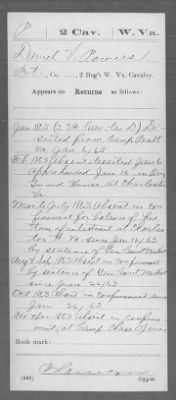 P 2 Cav. W. Va.
Daniel V. Powers
Pvt, Co. , 2 Reg't W. Va. Cavalry.
Appears in Returns as follows:
Jan 1863 (2 Va Cav Co D) De-
serted from Camp Piatt
Va Jan 6, 63
Feb 1863 Absent deserted Jan 6
apprehended Jan 16 in
Guard House, at Charleston
Va
Mar to July 1863 Absent in con
finement for balance of his
term of enlistment at Charles
ton W. Va. since Jan 16/63
by sentence of Gen Court Martial
Aug & Sept 1863 Absent in confinement
by sentence of Gen Court Martial
since June 26/63
Oct 1863 Absent in confinement since
Jan 26, 63
Nov & Dec 1863 Absent in confine
ment at Camp Chase O
Book mark:
(546) Copyist.